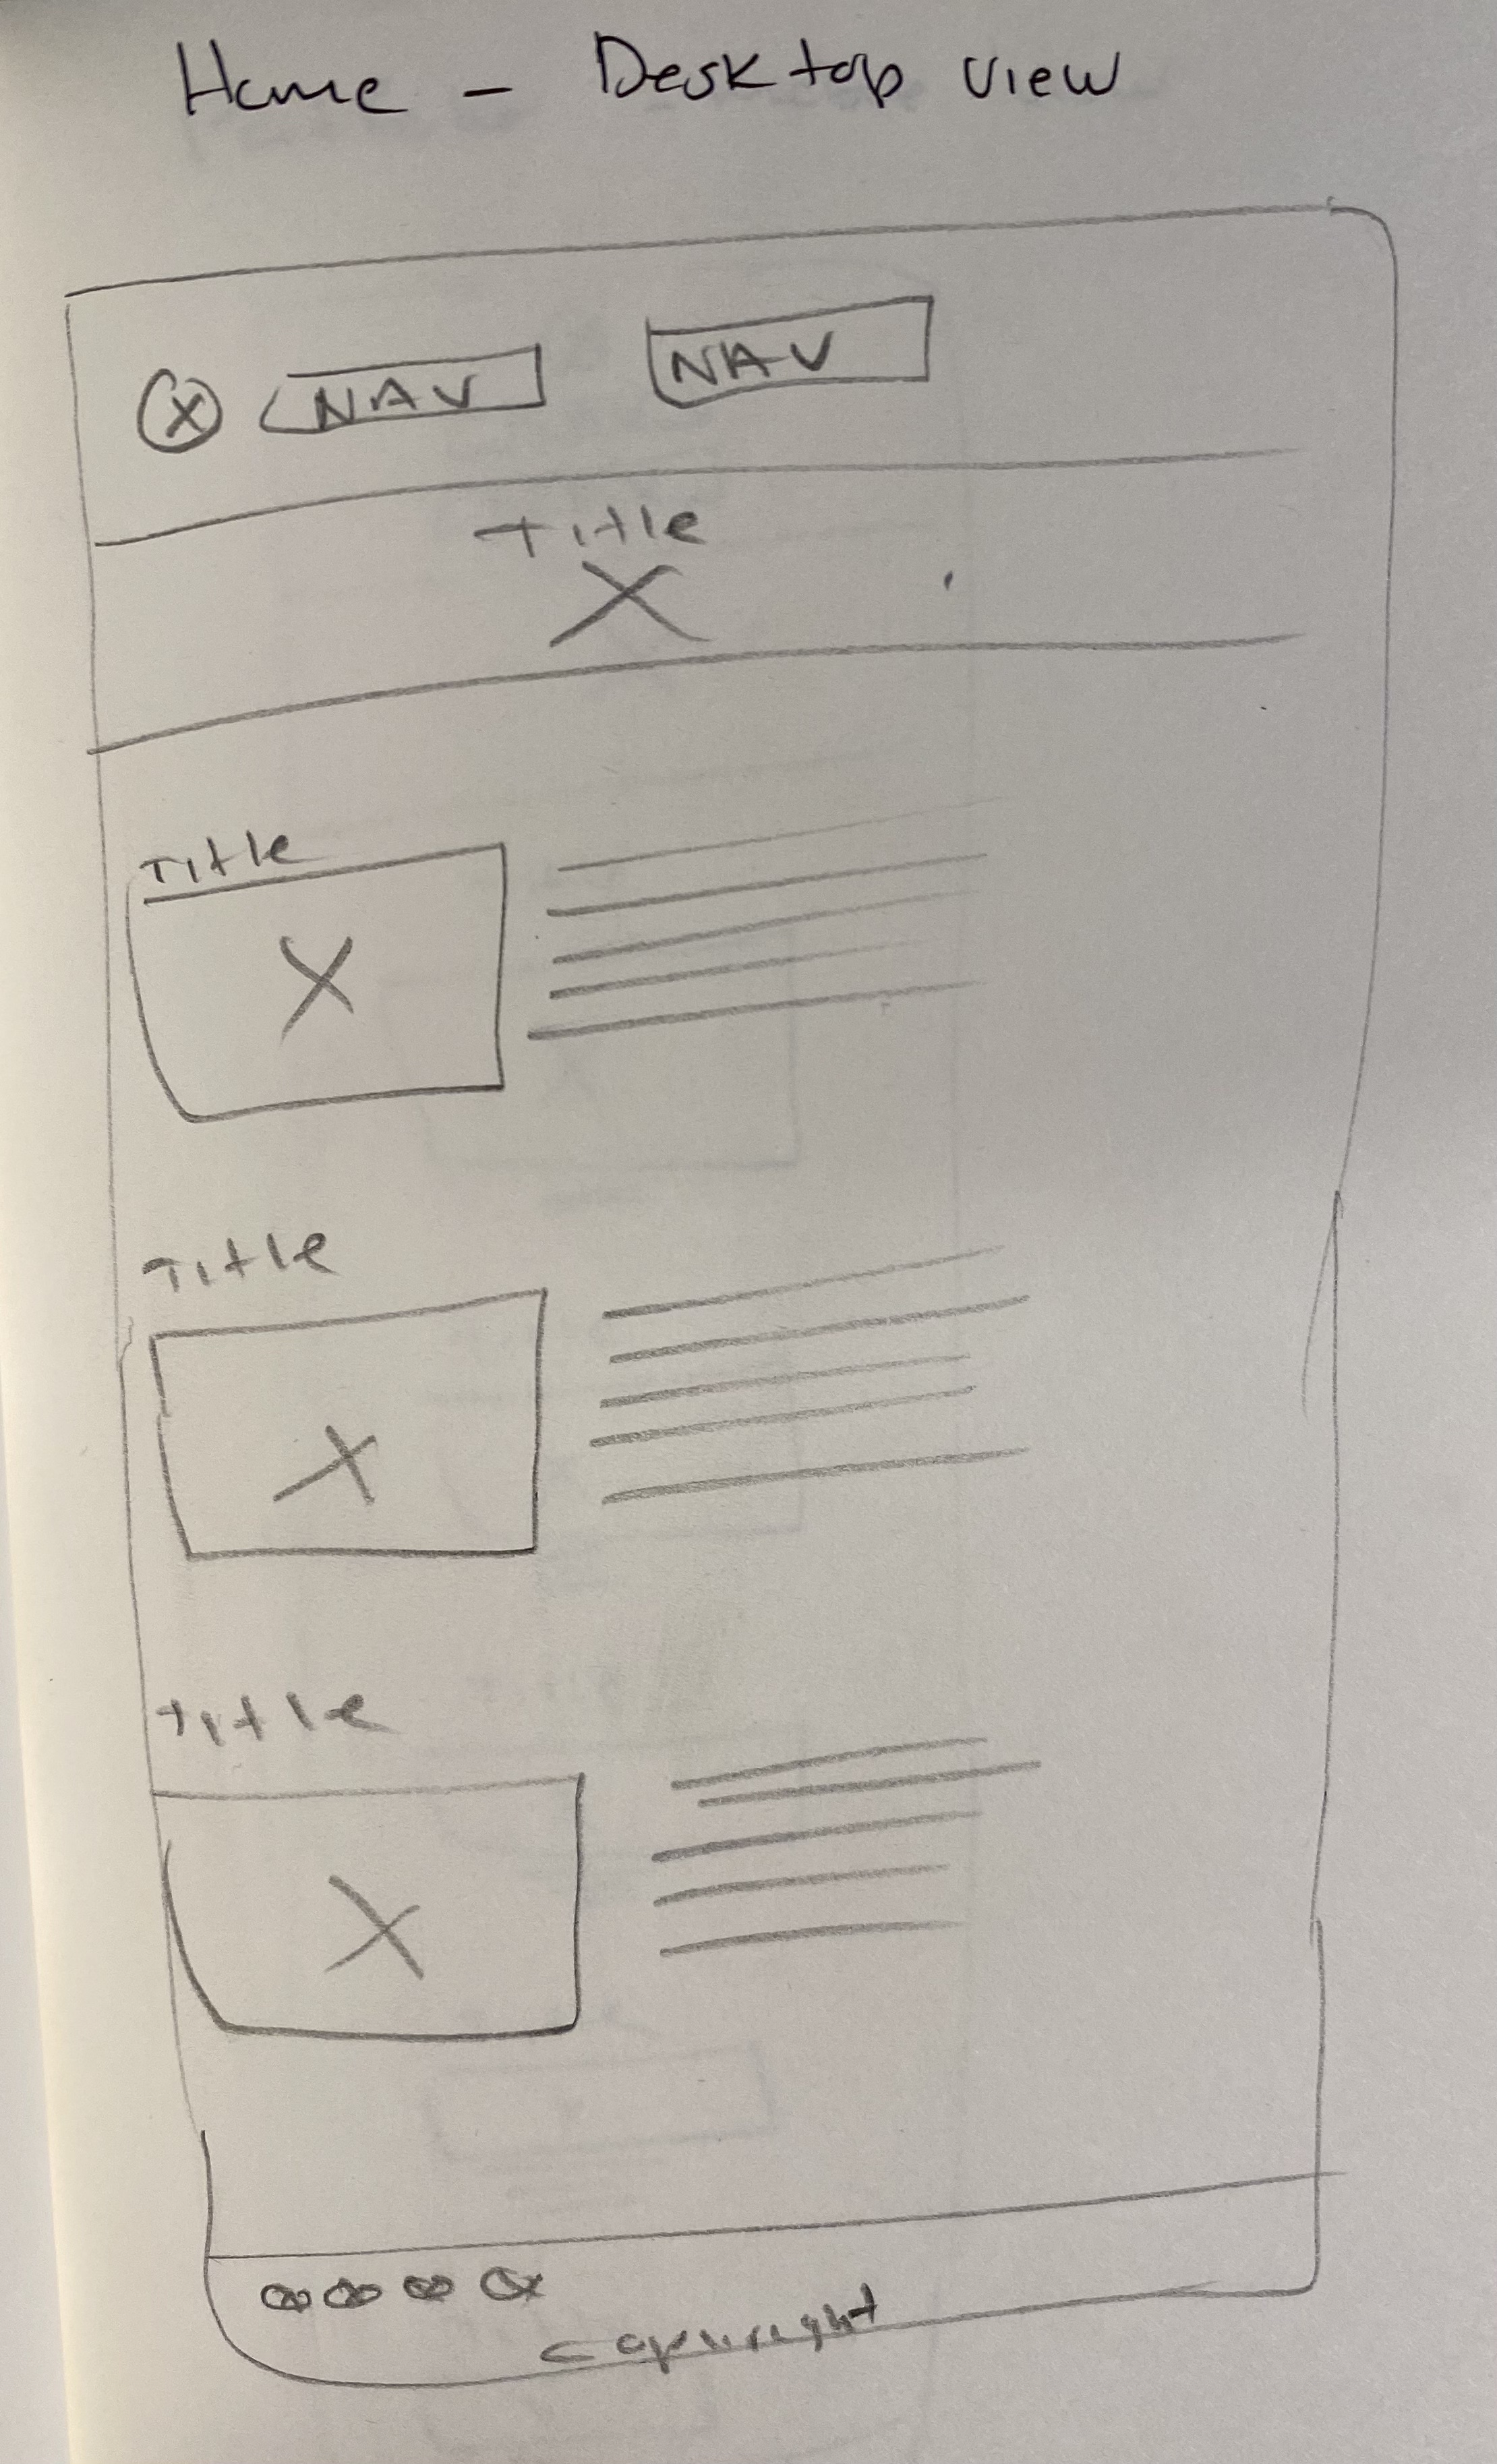 Home - Desktop view
X NAV NAV
Title
X
Title
X
Title
X
Title
X
Copyright